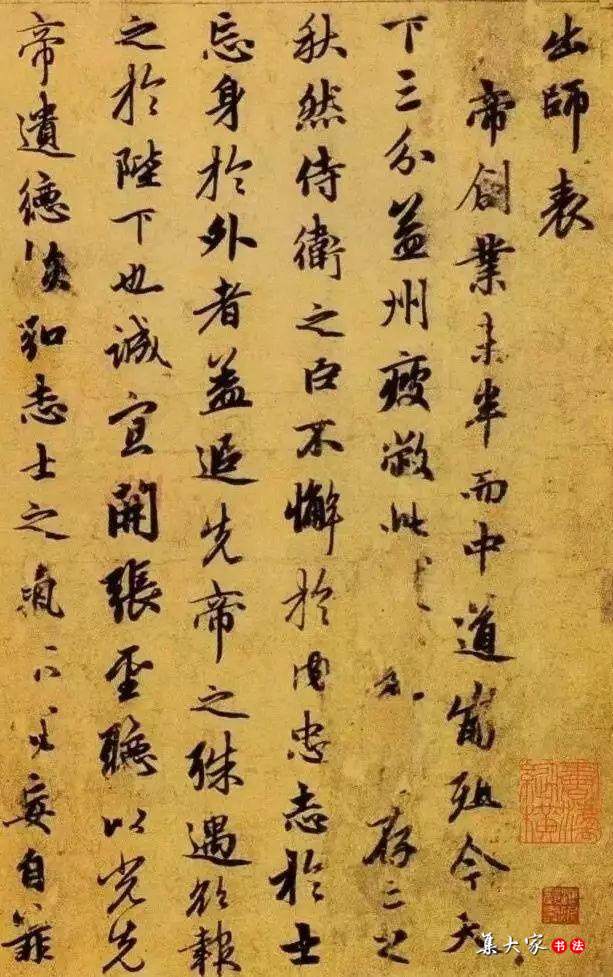 出師表
帝創業未半而中道崩殂今天
下三分益州疲敝此存亡之
秋然侍衛之臣不懈於内忠志於士
忘身於外者盖追先帝之殊遇欲報
之於陛下也誠宜開張聖聽以光先
帝遺德恢弘志士之氣不宜妄自菲
集大家书法